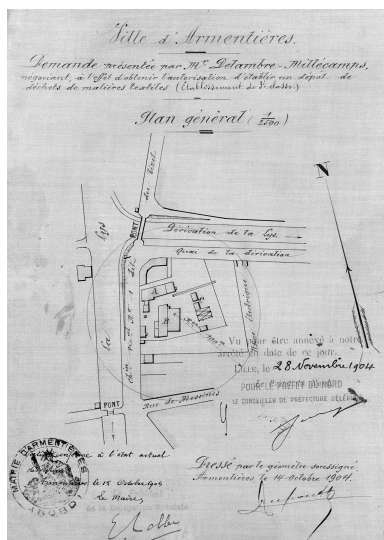 Ville d'Armentières.
Demande présentée par Mr Delambre-Millécamps,
négociant, à l'effet d'obtenir l'autorisation d'établir un dépôt de
déchets de matières textiles (Établissement de 3e classe.)
Plan général (1/2500)
N
du Bizet
PONT
Lys
La
Dérivation de la Lys.
Quai de la dérivation
Chin vic
A
B
électrique
PONT
Rue de Messines
Vu pour être annexé à notre
arrêté en date de ce jour.
LILLE, le 28 Novembre 1904
POUR LE PRÉFET DU NORD
LE CONSEILLER DE PRÉFECTURE DÉLÉGUÉ
conforme à l'état actuel
Armentières le 15 Octobre 1904
Le Maire,
MAIRIE D'ARMENTIÈRES
(NORD)
Dressé par le géomètre soussigné
Armentières le 14 Octobre 1904.